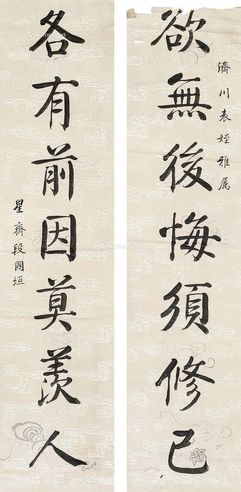 濟川表姪雅属
欲無後悔須修己
各有前因莫羨人
星齊段國垣